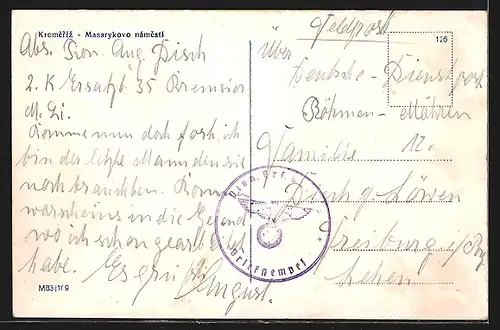 Kroměříž - Masarykovo náměstí
Abs. Pion. Aug. Disch
2. K Ersatzb 35 Kremsier
M. Li.
Komme nun doch fort, ich
bin der letzte Mann den sie
noch brauchten. Kom
in die Gegend
wo ich schon gearb
habe. Es
August.
M83|1f9
Feldpost
126
Über
Deutsche - Dienstpost
Böhmen - Mähren
Familie
Disch g. Löwen
Freiburg i/Brg
Lehen
Briefstempel